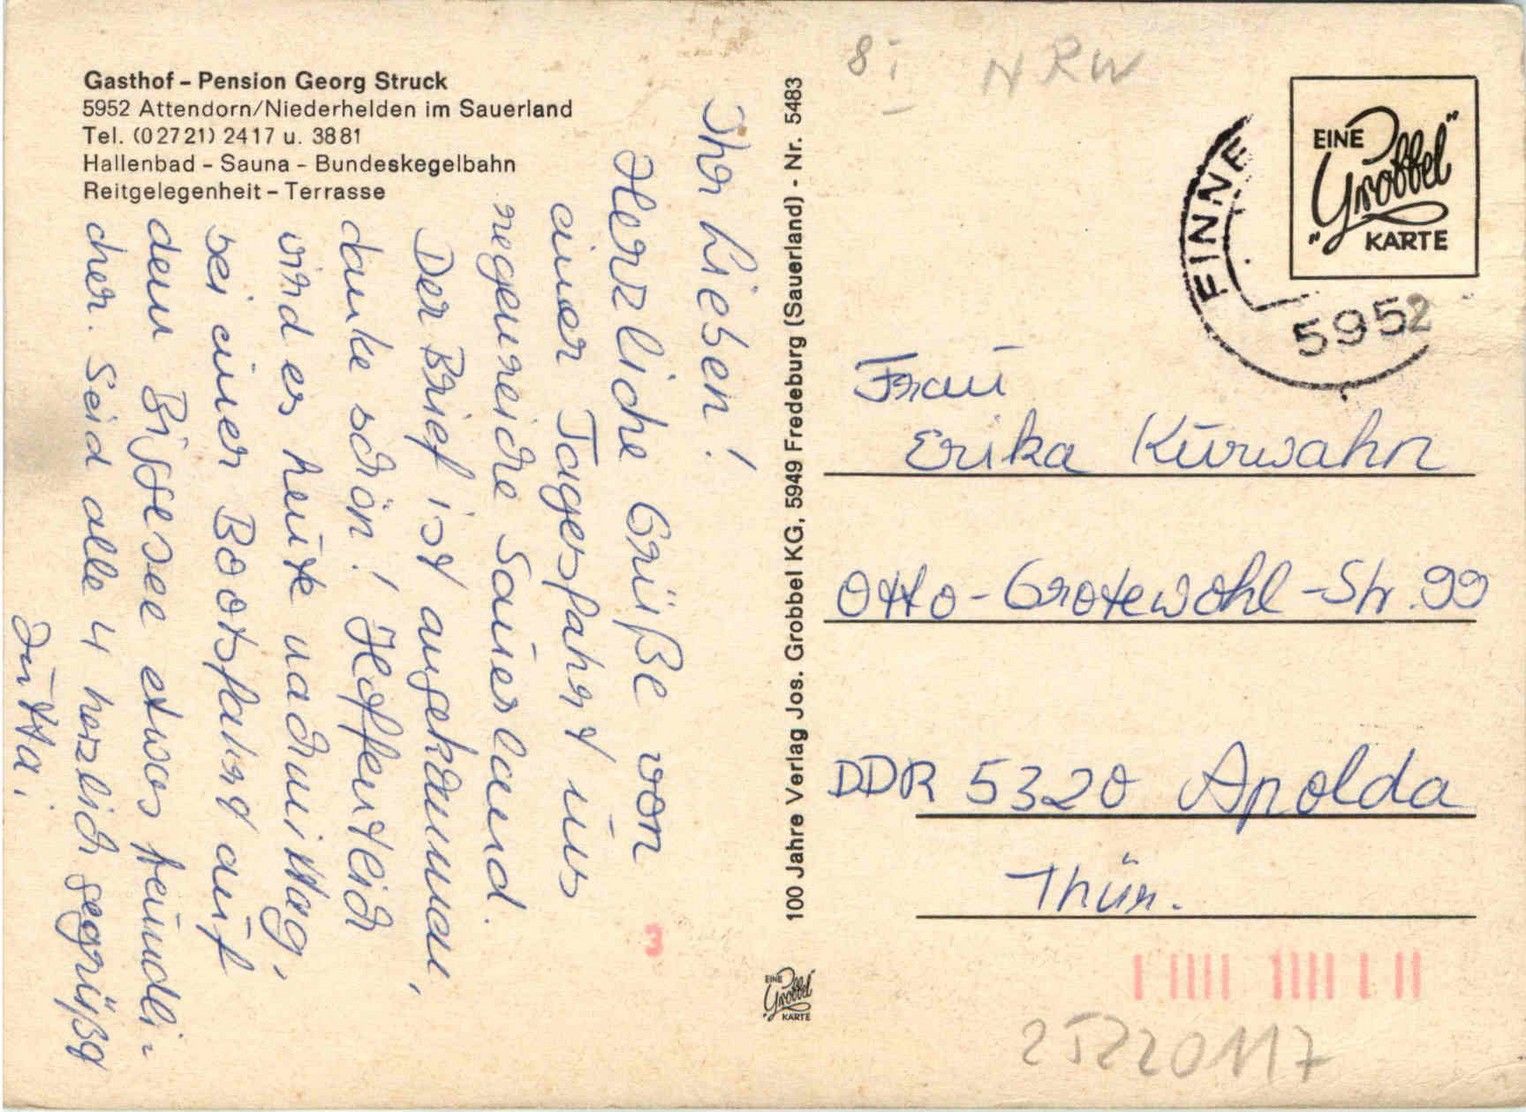 Gasthof – Pension Georg Struck
5952 Attendorn/Niederhelden im Sauerland
Tel. (02721) 2417 u. 3881
Hallenbad – Sauna – Bundeskegelbahn
Reitgelegenheit – Terrasse
Ihr Lieben!
Herzliche Grüße von
einer Tagesfahrt ins
regenreiche Sauerland.
Der Brief ist angekommen,
danke schön! Hoffentlich
wird es heute nachmittag,
bei einer Bootsfahrt auf
dem Biggesee etwas freundli-
cher. Seid alle 4 herzlich gegrüßt
Jutta.
100 Jahre Verlag Jos. Grobbel KG, 5949 Fredeburg (Sauerland) - Nr. 5483
EINE
"Grobbel"
KARTE
3
8
NRW
EINE
"Grobbel"
KARTE
FINNE
5952
Frau
Erika Kürwahn
Otto-Grotewohl-Str. 99
DDR 5320 Apolda
Thür.
25220117